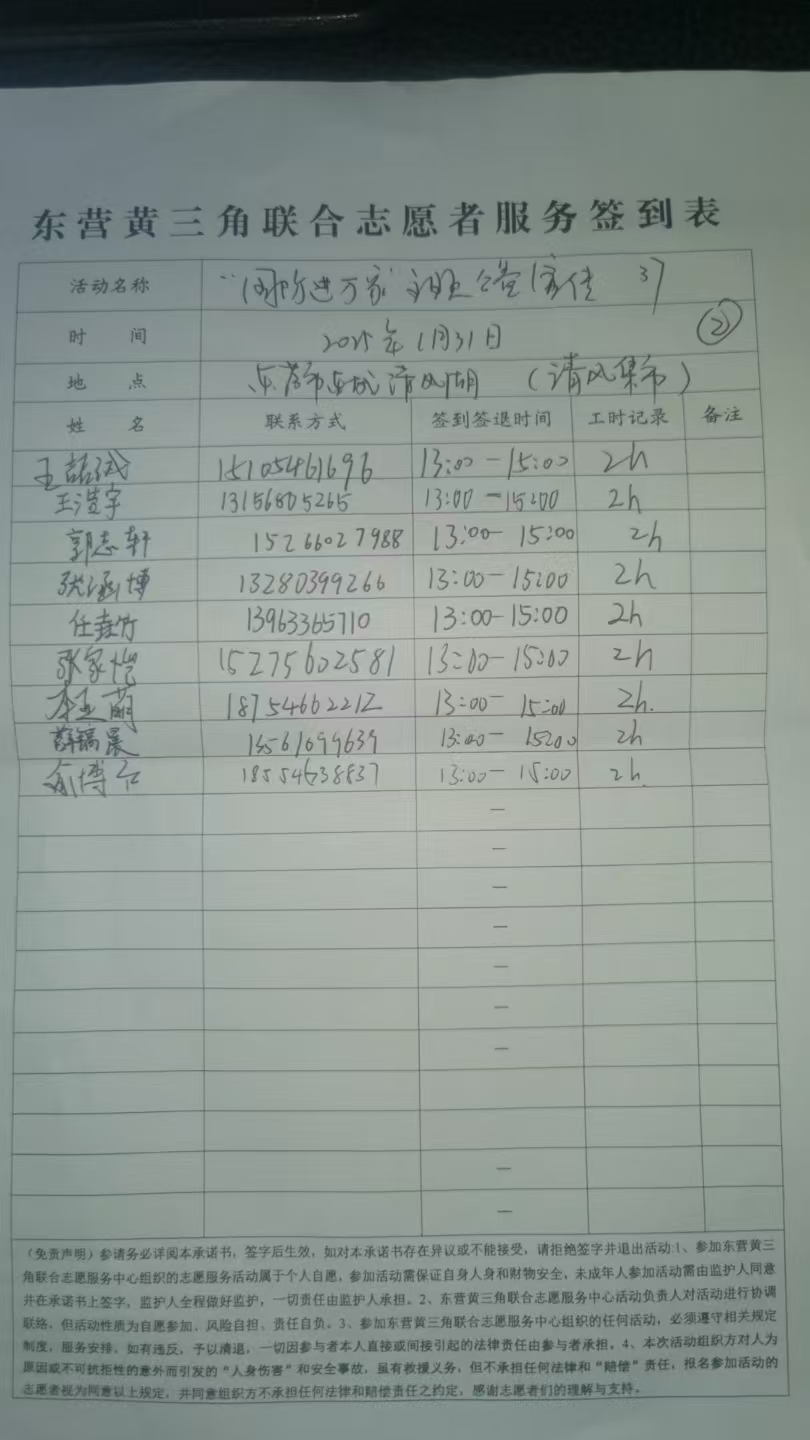 东营黄三角联合志愿者服务签到表
活动名称 "国防进万家" 公益宣传 37
时 间 2025年1月31日 ②
地 点 东营市东城清风湖 (清风集市)
姓 名 联系方式 签到签退时间 工时记录 备注
王喆斌 15105461696 13:00-15:00 2h
王浩宇 13156805265 13:00-15:00 2h
郭志轩 15266027988 13:00-15:00 2h
张涵博 13280399266 13:00-15:00 2h
任垚竹 13963365710 13:00-15:00 2h
张家恺 15275602581 13:00-15:00 2h
李孟萌 18754662212 13:00-15:00 2h.
薛镐晨 15561699639 13:00-15:00 2h
俞博 18554638837 13:00-15:00 2h.
—
—
—
—
—
—
—
—
—
(免责声明)参请务必详阅本承诺书,签字后生效,如对本承诺书存在异议或不能接受,请拒绝签字并退出活动:1、参加东营黄三
角联合志愿服务中心组织的志愿服务活动属于个人自愿,参加活动需保证自身人身和财物安全,未成年人参加活动需由监护人同意
并在承诺书上签字,监护人全程做好监护,一切责任由监护人承担。2、东营黄三角联合志愿服务中心活动负责人对活动进行协调
联络,但活动性质为自愿参加、风险自担、责任自负。3、参加东营黄三角联合志愿服务中心组织的任何活动,必须遵守相关规定
制度,服务安排,如有违反,予以清退,一切因参与者本人直接或间接引起的法律责任由参与者承担。4、本次活动组织方对人为
原因或不可抗拒性的意外而引发的"人身伤害"和安全事故,虽有救援义务,但不承担任何法律和"赔偿"责任,报名参加活动的
志愿者视为同意以上规定,并同意组织方不承担任何法律和赔偿责任之约定,感谢志愿者们的理解与支持。